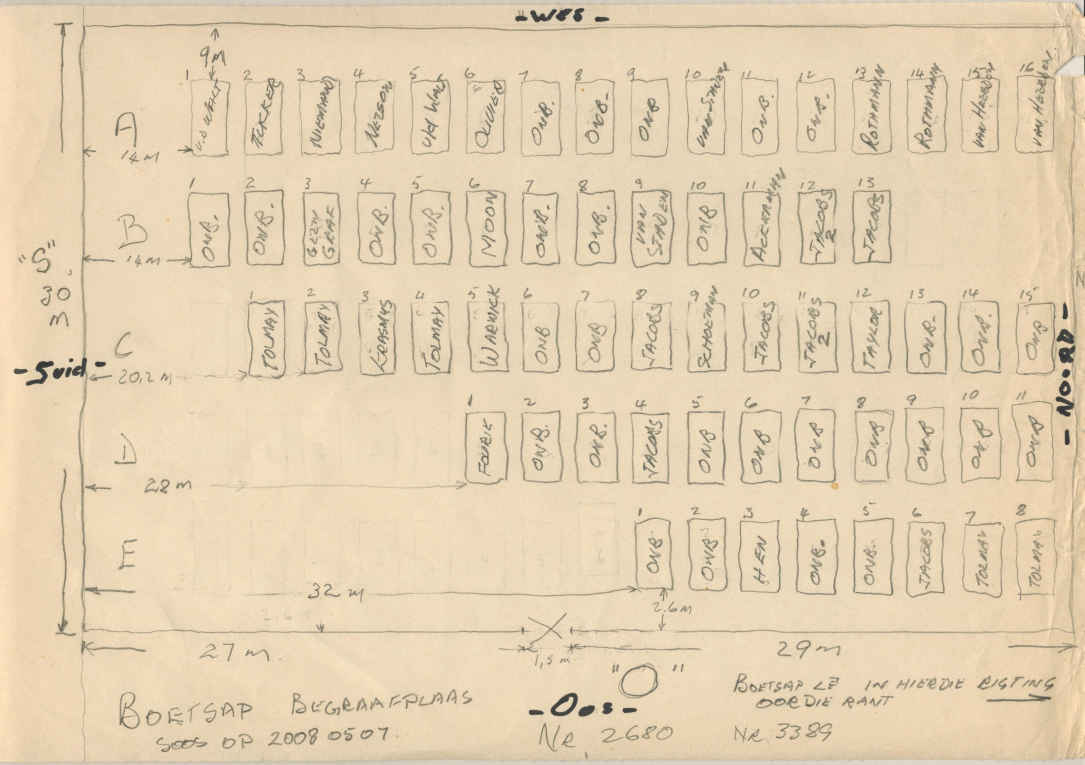 - WES -
9 M
1 2 3 4 5 6 7 8 9 10 11 12 13 14 15 16
A
NIENAND NELSON OLIVIER ONB. ONB- ONB ONB. ONB. ROTHMANN ROTHMANN VAN HEERDEN VAN HEERDEN
14 M
1 2 3 4 5 6 7 8 9 10 11 13 12
B
ONB. ONB. GEEN GRAF ONB. ONB. MOON ONB. ONB. VAN STADEN ONB ACKERMAN JACOBS 2 JACOBS
14 M
"S"
30
M
1 2 3 4 5 6 7 8 9 10 11 12 13 14 15
C
TOLMAY TOLMAY ERASMUS TOLMAY WARWICK ONB ONB JACOBS SCHOEMAN JACOBS JACOBS 2 TAYLOR ONB- ONB. ONB
- Suid -
20,2 M
- NOORD -
N
1 2 3 4 5 6 7 8 9 10 11
D
FOURIE ONB. ONB. JACOBS ONB ONB ONB ONB ONB ONB ONB
28 M
1 2 3 4 5 6 7 8
E
ONB. ONB HEN ONB. ONB. JACOBS TOLMAY TOLMAY
32 M
2.6 M
27 M.
1,5 M
29 M
"O"
BOETSAP BEGRAAFPLAAS
SOOS OP 2008 05 07.
- Oos -
NR, 2680
BOETSAP LÊ IN HIERDIE RIGTING
OOR DIE RANT
NR, 3389